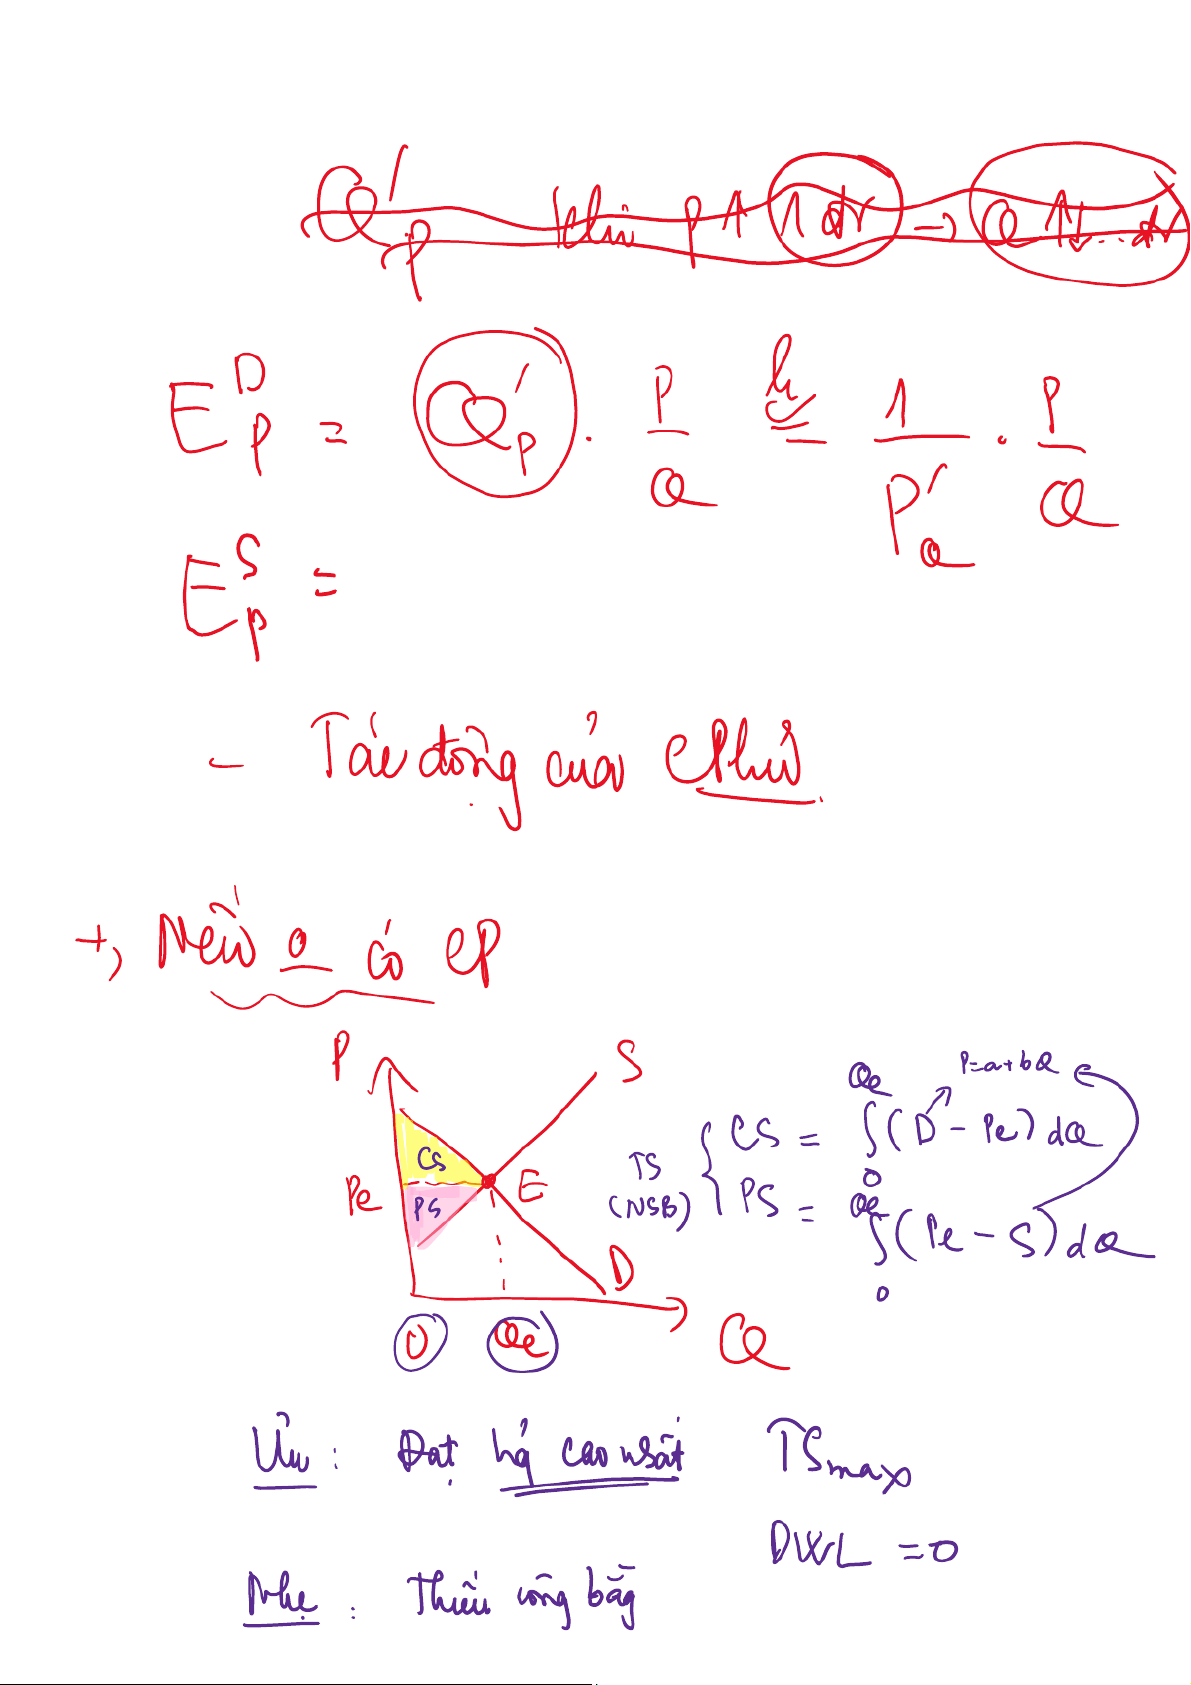 Q'p khi P↑ 1 đv → Q ↑↓... đv
E^D_P = Q'_P . P/Q = 1/P'_Q . P/Q
E^S_P =
- Tác động của CPhủ.
+, Nếu 0 có CP
P S
CS
Pe E
PS
D
0 Qe Q
TS (NSB) { CS = ∫_0^Qe (D - Pe) dQ
P = a + bQ
PS = ∫_0^Qe (Pe - S) dQ
Ưu : Đạt hq cao nhất TSmax
DWL = 0
Nhẹ : Thiếu công bằng